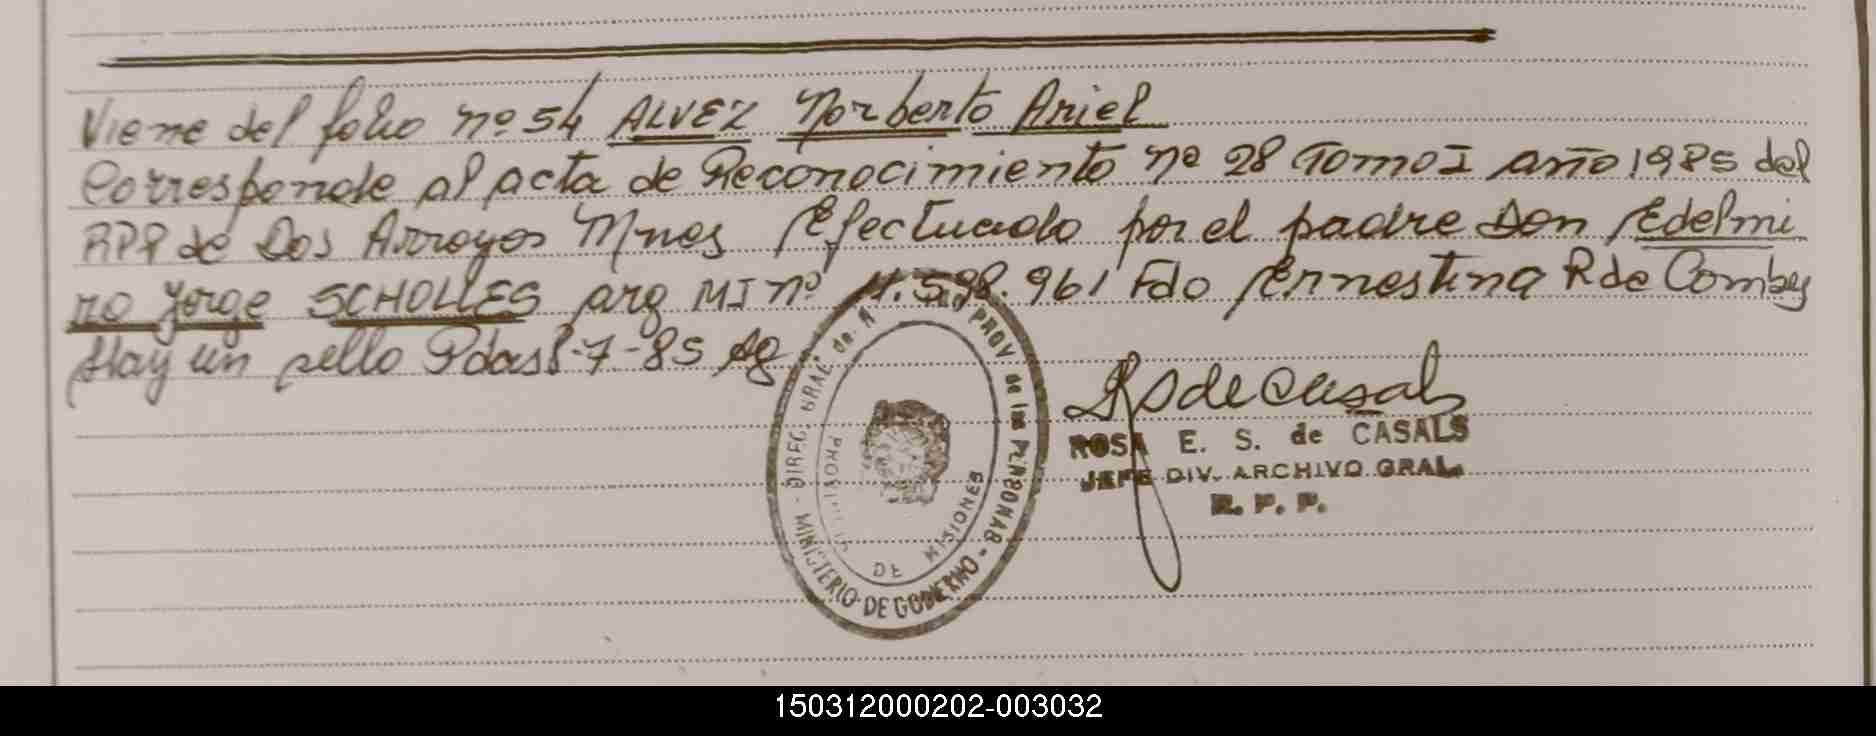 Viene del folio nº 54 ALVEZ Norberto Ariel
Corresponde al acta de Reconocimiento nº 28 Tomo I año 1985 del
RPP de Dos Arroyos Mnes Efectuado por el padre Don Edelmi
ro Jorge SCHOLLES arg MI nº 11.598.961 Fdo Ernestina R de Combes
Hay un sello Pdas 8-7-85
DIREC. GRAL. de PROV de las PERSONAS - MINISTERIO DE GOBERNO -
PROVINCIA DE MISIONES
RS de Casals
ROSA E. S. de CASALS
JEFE DIV. ARCHIVO GRAL.
R. P. P.
150312000202-003032